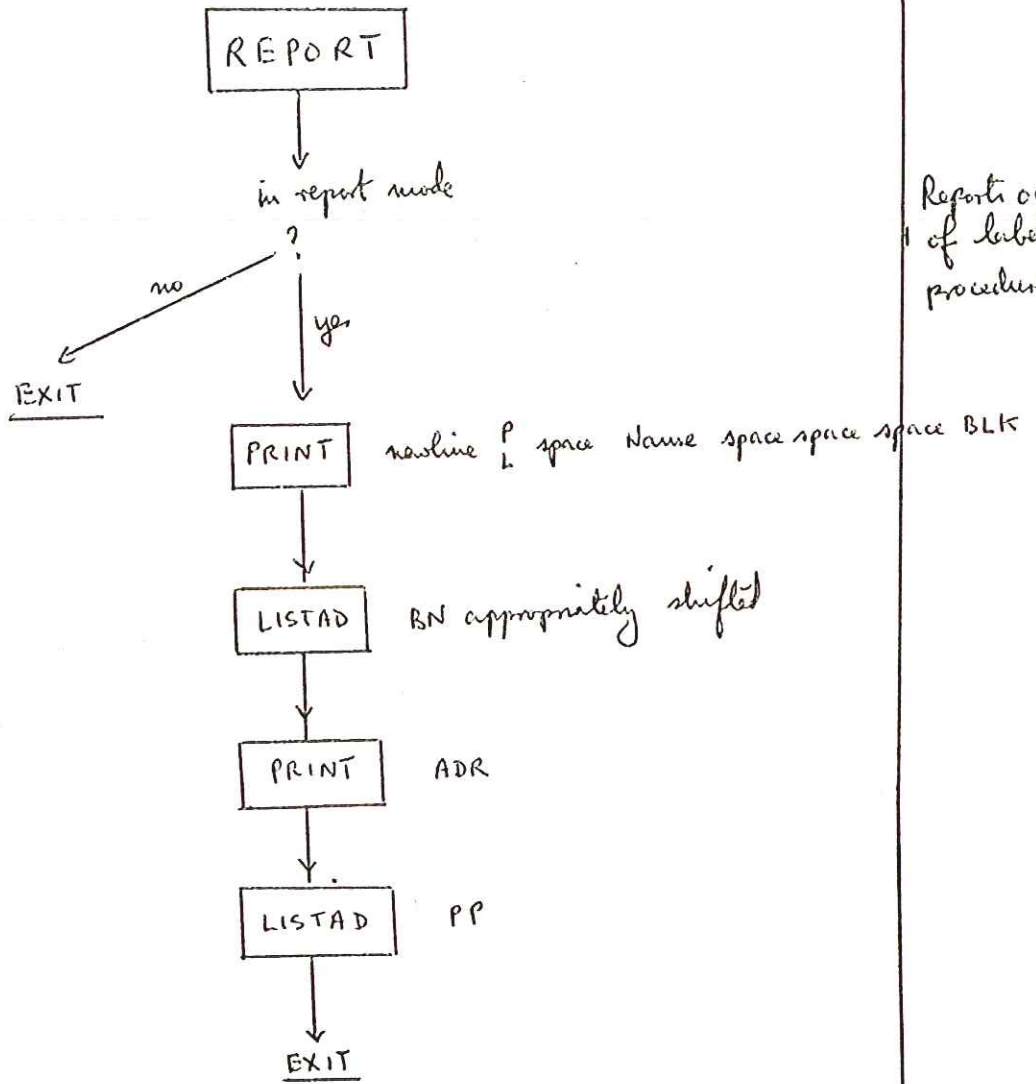 REPORT
in report mode
?
no
yes
EXIT
Reports
of
PRINT newline P L space Name space space space BLK
LISTAD BN appropriately shifted
PRINT ADR
LISTAD PP
EXIT